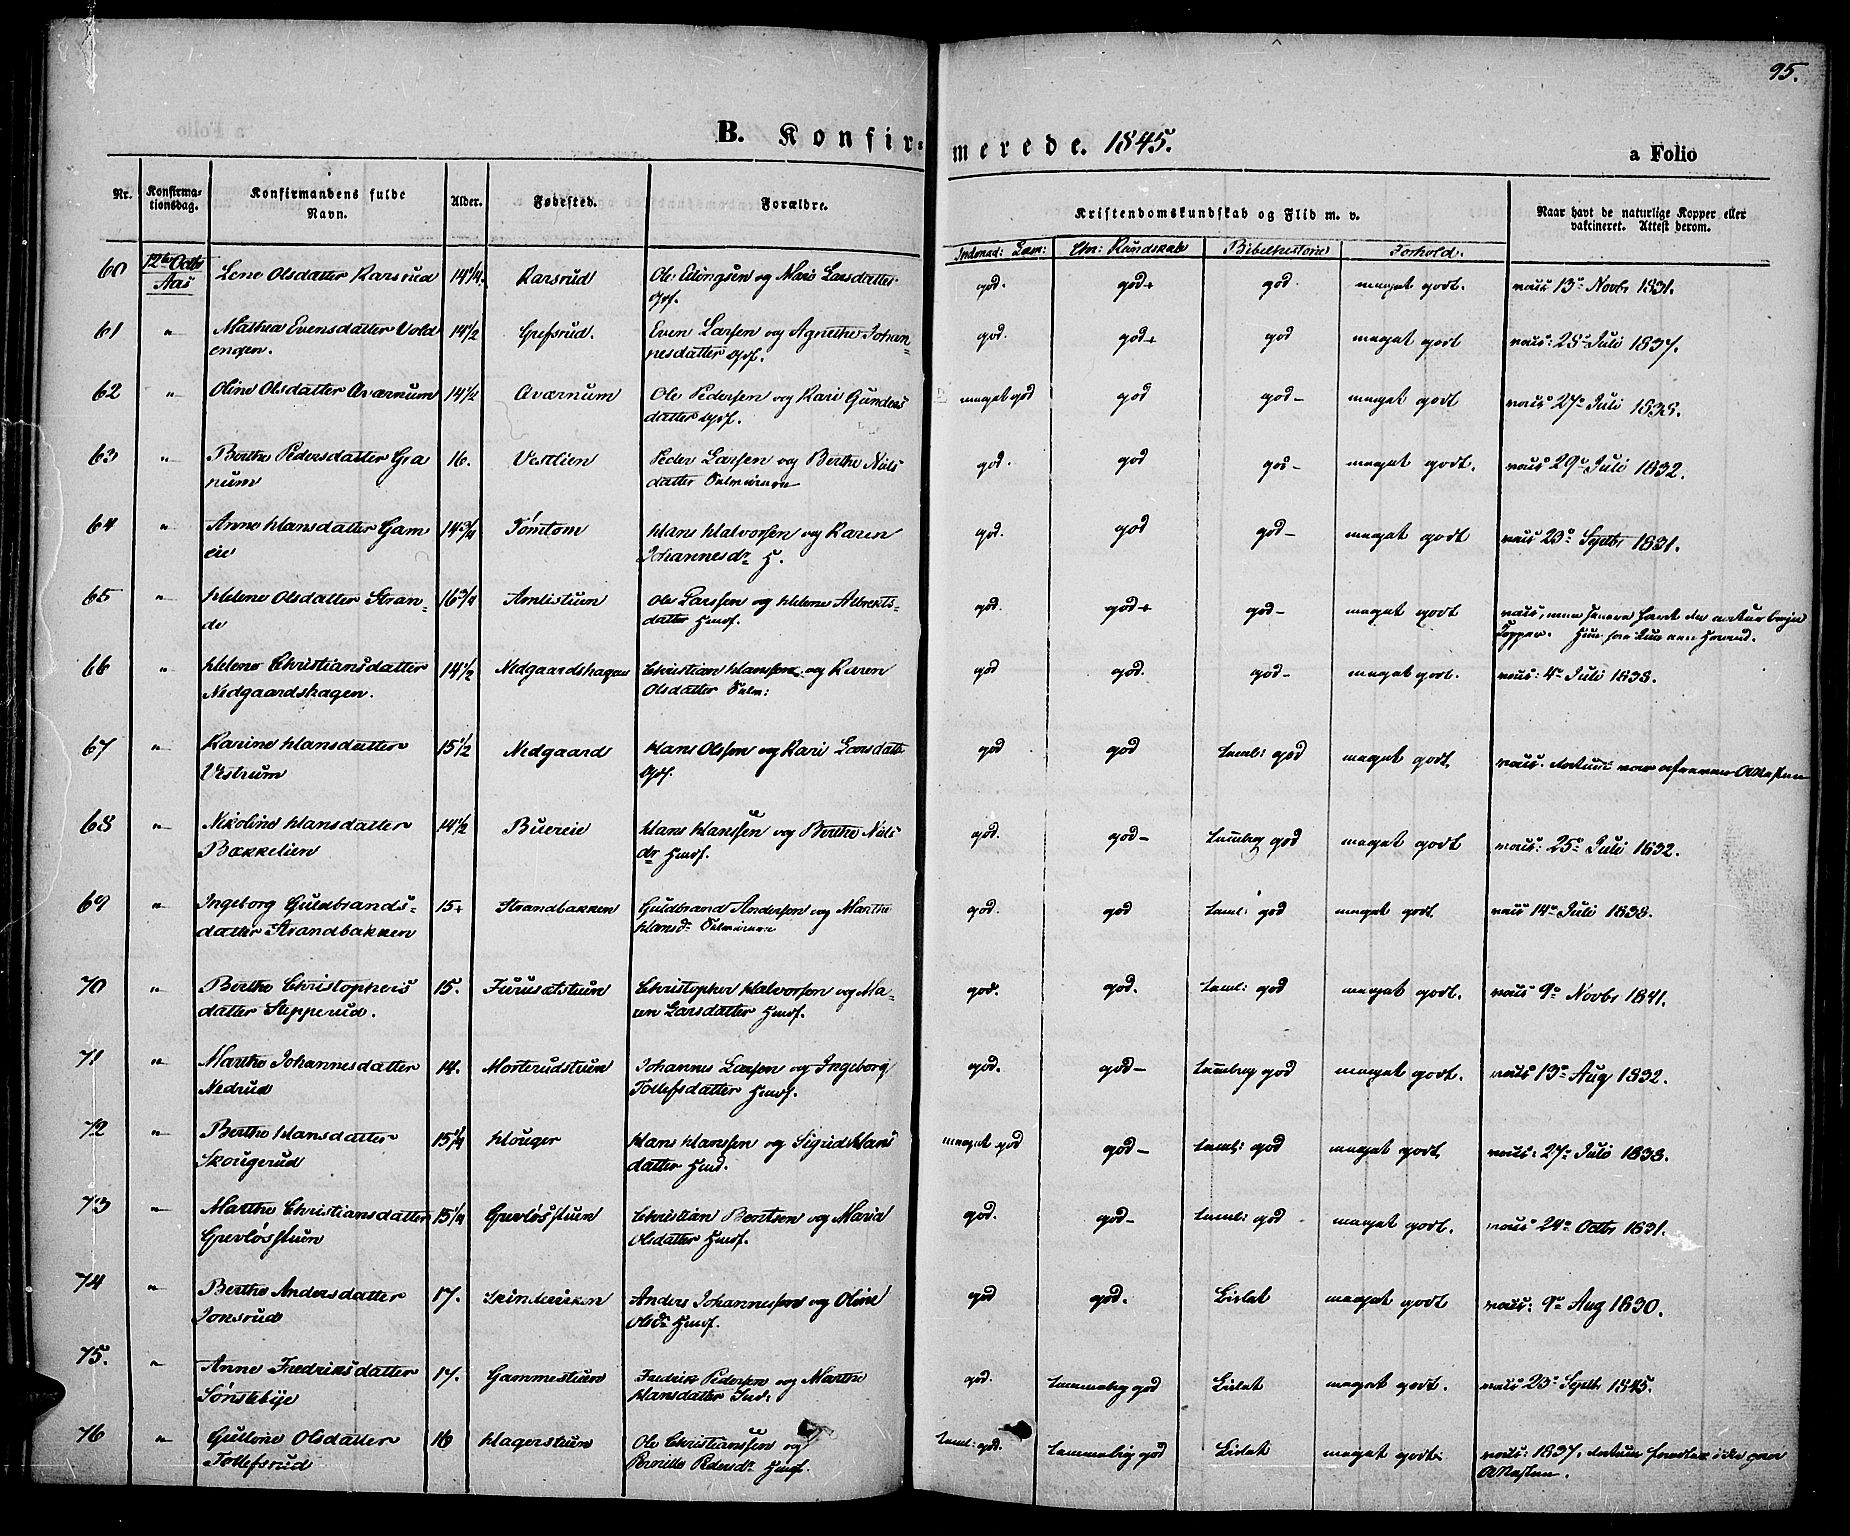 95.
B. Konfirmerede. 1845.
a Folio
Nr. Konfirmationsdag. Konfirmandens fulde Navn. Alder. Fødested. Forældre. Kristendomskundskab og Flid m. v. Naar havt de naturlige Kopper eller vakcineret. Attest herom.
Indenad: Læsn: Chr: Kundskab Bibelhistorie Forhold.
60 12te Octbr Aas Lene Olsdatter Karsrud 14 1/4. Karsrud Ole og Mari Larsdatter god. god+ god. meget godt. vacc 13de Novbr 1831.
61 " Mathea Evensdatter Vold
engen. 14 1/2 Grefsrud. Even Larsen og Agnethe Johan-
nesdatter god. god+ god meget godt vacc: 28de Juli 1837.
62 " Oline Olsdatter Aværnum 14 1/2 Aværnum Ole Pedersen og Kari Gunders
datter meget god god god- meget godt vacc 27de Juli 1838.
63 " Berthe Pedersdatter Gra
num 16. Vestlien Peder Larsen og Berthe Niels
datter god. god god- meget godt. vacc 29de Juli 1832.
64 " Anne Hansdatter Gam
eie 14 3/4 Tømtom Hans Halvorsen og Karen
Johannesdr H. god. god god- meget godt vacc 23de Septbr 1831.
65 " Helene Olsdatter Stran-
de 16 3/4 Amlistuen Ole Larssen og Helene Albrekts-
datter Husf. god. god+ god- meget godt vacc, men senere havt de
Kopper.
66 " Helene Christiansdatter
Nedgaardshagen. 14 1/2 Nedgaardshagen Christian Hanssen og Karen
Olsdatter god god. god- meget godt. vacc: 4de Juli 1833.
67 " Karine Hansdatter
Vestrum 15 1/2 Nedgaard Hans Olssen og Kari Larsdatt. god god temml: god meget godt. vacc. Attesten
68 " Nikoline Hansdatter
Bækkelien 14 1/2 Buereie Hans Hanssen og Berthe Niels
dr Husf. god. god- temmelig god meget godt vacc: 25de Juli 1832.
69 " Ingeborg Guldbrands-
datter Strandbakken 15+ Strandbakken Guldbrand Andersen og Marthe
Hansdr god. god temml: god meget godt. vacc 14de Juli 1833.
70 " Berthe Christophers
datter Stepperud. 15. Furusætstuen Christopher Halvorsen og Ma-
ren Larsdatter Husf. god. god. temml: god meget godt. vacc 9de Novbr 1841.
71 " Marthe Johannesdatter
Nedrud 14. Morterudstuen Johannes Larsen og Ingeborg
Tollefsdatter Husf. god. god- temmelig god meget godt. vacc 13de Aug 1832.
72 " Berthe Hansdatter
Skougerud 15 1/4 Houger Hans Hanssen og Sigrid Hans
datter Husf. meget god god- temml: god meget godt. vacc: 27de Juli 1833.
73 " Marthe Christiansdatter
Grevløsstuen 15 1/4 Grevløsstuen Christian Berntsen og Maria
Olsdatter Husf. god. god- temml: god meget godt. vacc 24de Octbr 1831.
74 " Berthe Andersdatter
Jonsrud 17. Anders Johannessen og Oline
Olsdr Husf. god god. Lidet meget godt vacc: 9de Aug 1830.
75. " Anne Fredriksdatter
Sønstebye 17. Gammestuen Fredrik Pedersen og Marthe
Hansdatter Ind: god. temmelig god Lidet meget godt. vacc 23de Septbr 1845.
76 " Gullone Olsdatter
Tollefsrud 16 Hagerstuen Ole Christianssen og
Pernille Pedersdr Husf. temml: god. temmelig god Lidet meget godt: vacc: 1837, Datum
Attesten.